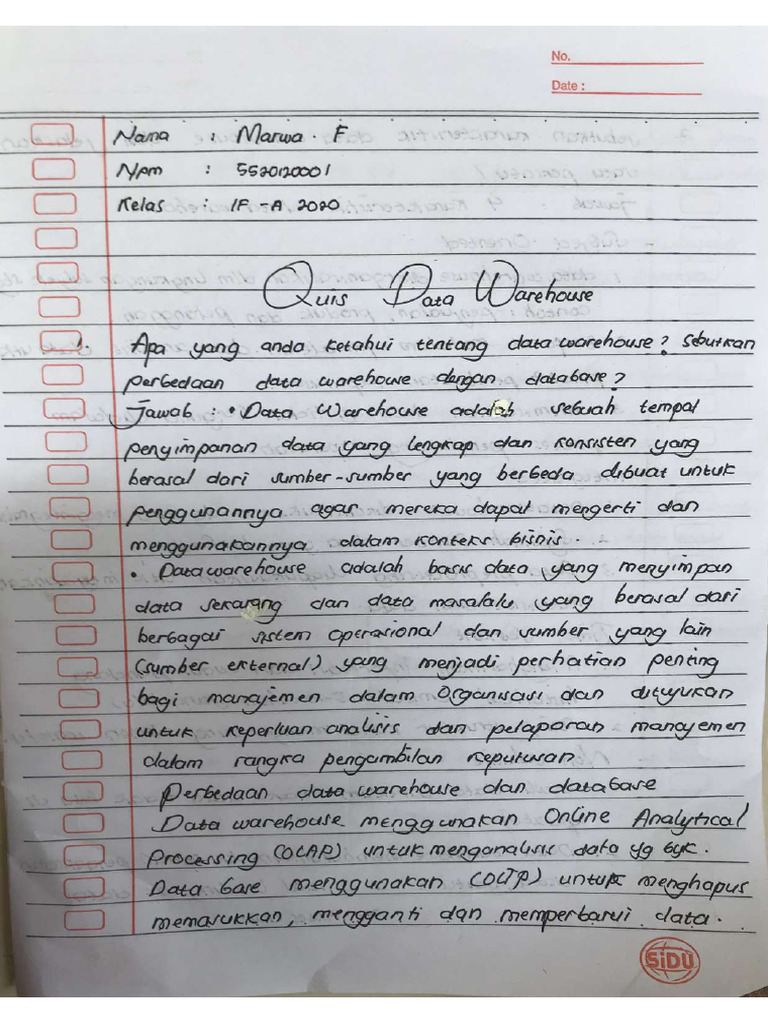 No.
Date :
Nama : Marwa. F
NPM : 5520120001
Kelas : IF -A 2020
Quis Data Warehouse
1. Apa yang anda ketahui tentang data warehouse? Sebutkan
perbedaan data warehouse dengan database?
Jawab : • Data Warehouse adalah sebuah tempat
penyimpanan data yang lengkap dan konsisten yang
berasal dari sumber-sumber yang berbeda dibuat untuk
penggunannya agar mereka dapat mengerti dan
menggunakannya dalam konteks bisnis.
• Data warehouse adalah basis data yang menyimpan
data sekarang dan data masalalu yang berasal dari
berbagai sistem operasional dan sumber yang lain
(sumber external) yang menjadi perhatian penting
bagi manajemen dalam organisasi dan ditujukan
untuk keperluan analisis dan pelaporan manajemen
dalam rangka pengambilan keputusan
Perbedaan data warehouse dan database
Data warehouse menggunakan Online Analytical
Processing (OLAP) untuk menganalisis data yg byk.
Data base menggunakan (OLTP) untuk menghapus
memasukkan, mengganti dan memperbarui data.
SiDU